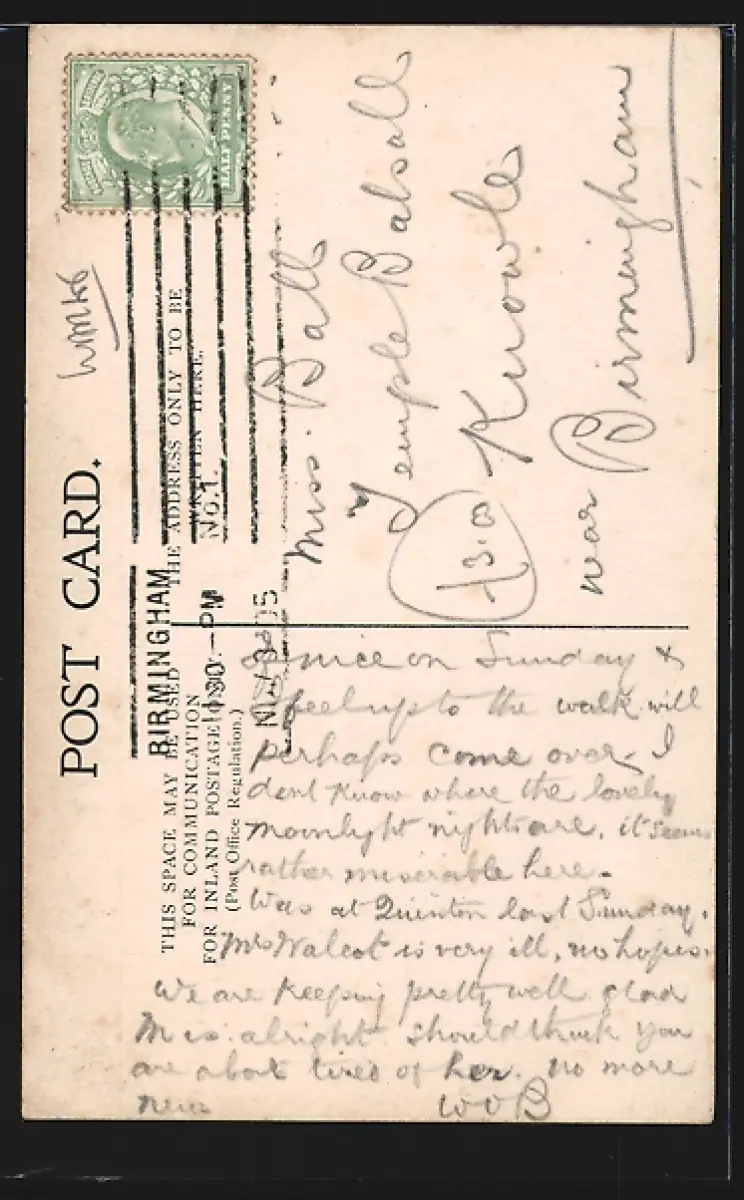 POST CARD.
THIS SPACE MAY BE USED
FOR COMMUNICATION
FOR INLAND POSTAGE
(Post Office Regulation.)
THE ADDRESS ONLY TO BE
WRITTEN HERE.
HALF PENNY
BIRMINGHAM
No.1.
PM
05
Miss. Ball
Temple Balsall
Knowle
near Birmingham
nice on Sunday &
feel up to the walk will
perhaps come over I
dont know where the lovely
moonlight nights are, it seems
rather miserable here.
Was at Quinton last Sunday.
Mrs Walcot is very ill, no hopes.
We are keeping pretty well glad
M is alright should think you
are about tired of her. no more
news
WVB